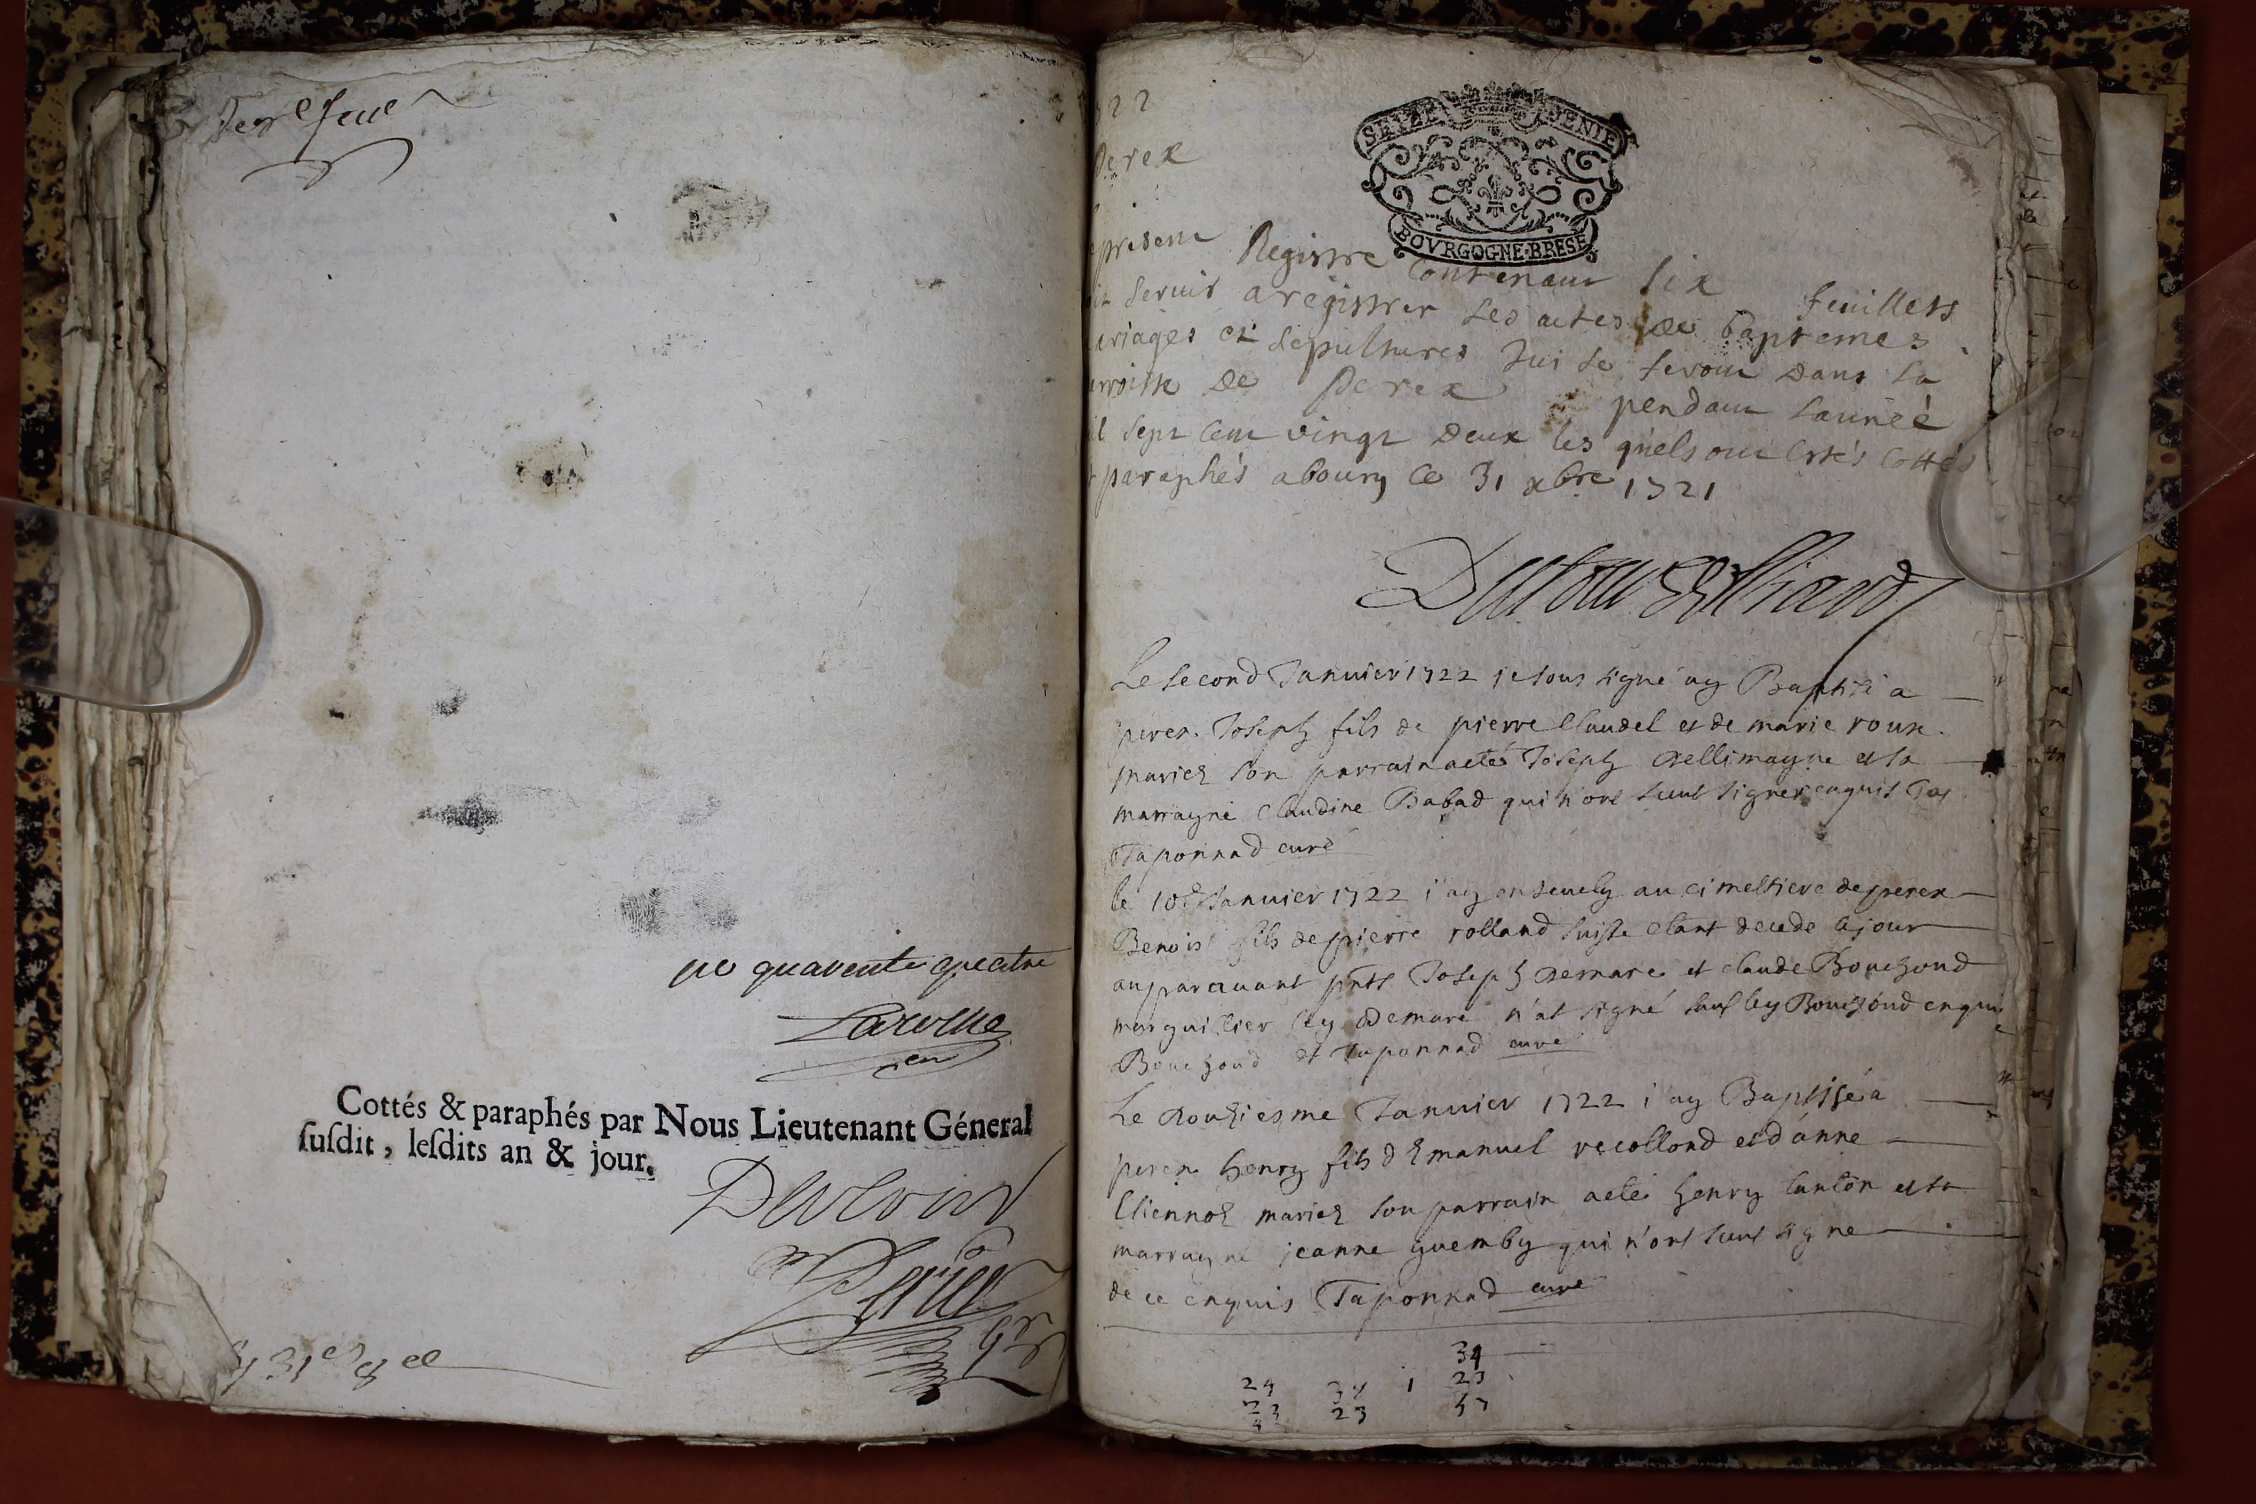 no quarente quatre
Cottés & paraphés par Nous Lieutenant Géneral
susdit, lesdits an & jour.
22
Perex
SEYZE DENIE
BOVRGOGNE·BRESE
present Registre Contenant six feuillets
servir a registrer les actes de baptemes
ariages et sepultures qui se feront dans la
arroisse de Perex pendant lannéé
il sept cent vingt deux les quels ont estés cottés
paraphés a bourg ce 31 xbre 1721
Le second Janvier 1722 je sous signé ay Baptisé a
perex Joseph fils de pierre Claudel et de marie roux
mariez son parrain a eté Joseph dellimagne et sa
marrayne Claudine Babad qui n'ont sceut signer enquis
Taponnad curé
le 10e Janvier 1722 j'ay ensevely au cimeltiere de perex
Benoist fils de pierre rolland suisse etant decede le jour
auparavant pnts Joseph demare et claude Bouchoud
marguillier ley demare n'at signé sauf ley Bouchoud enquis
Bouchoud et Taponnad curé
Le douziesme Janvier 1722 j'ay Baptisé a
perex henry fils d Emanuel recollond et d'anne
Etiennoz mariez son parrain a eté henry tanton et sa
marrayne jeanne guemby qui n'ont sceut signe
de ce enquis Taponnad curé
34
24 34 1 23
23 23 57